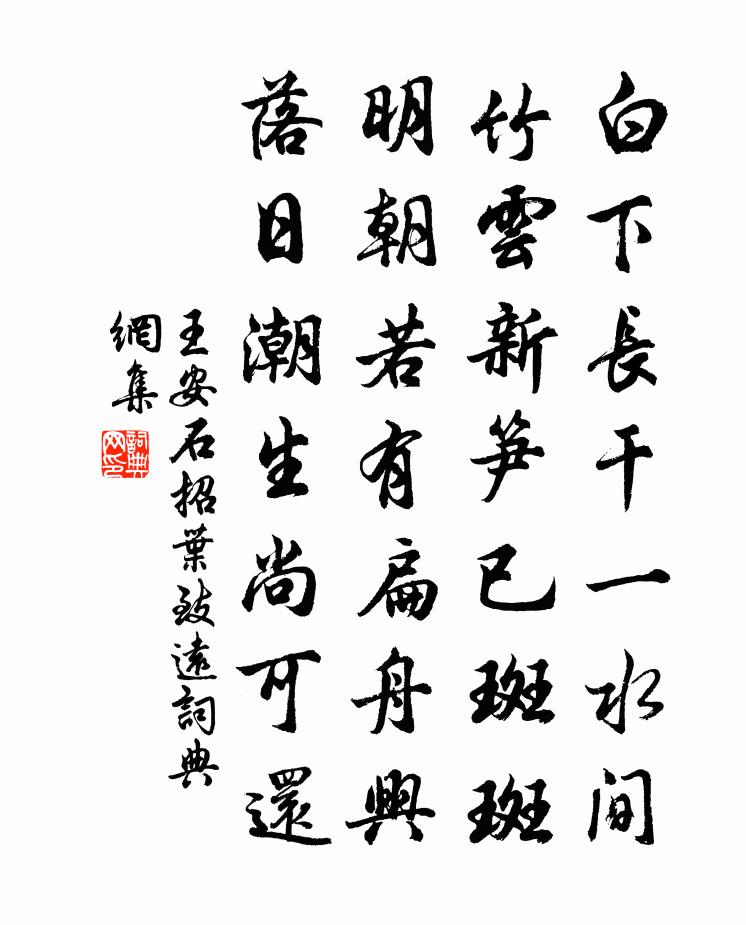 白下長干一水間
竹雲新笋已斑斑
明朝若有扁舟興
落日潮生尚可還
王安石招葉致遠詞典
網集
詞典
网印